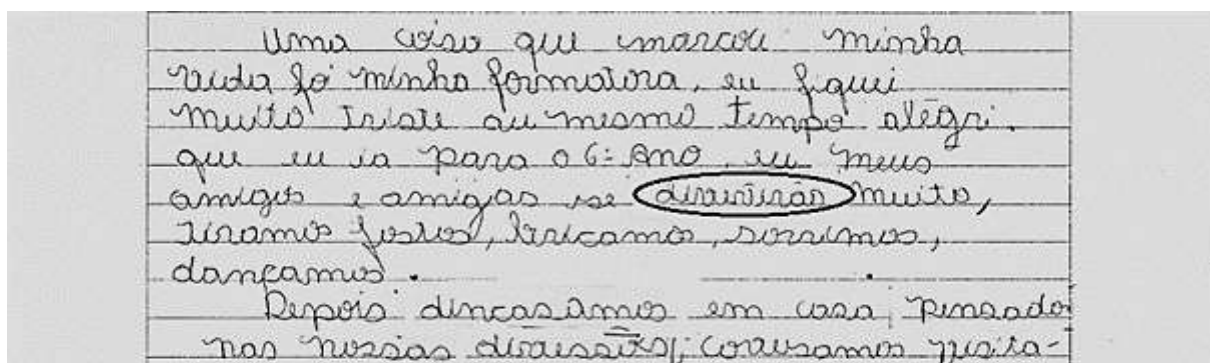 Uma coisa que marcou minha
vida foi minha formatora, eu fiquei
muito triste au mesmo tempo alegri.
que eu ia para o 6º Ano, eu meus
amigos e amigas se divirtirão muito,
tiramos fostos, bricamos, sorrimos,
dançamos.
Depois dincasamos em casa, pensado
nas nossas